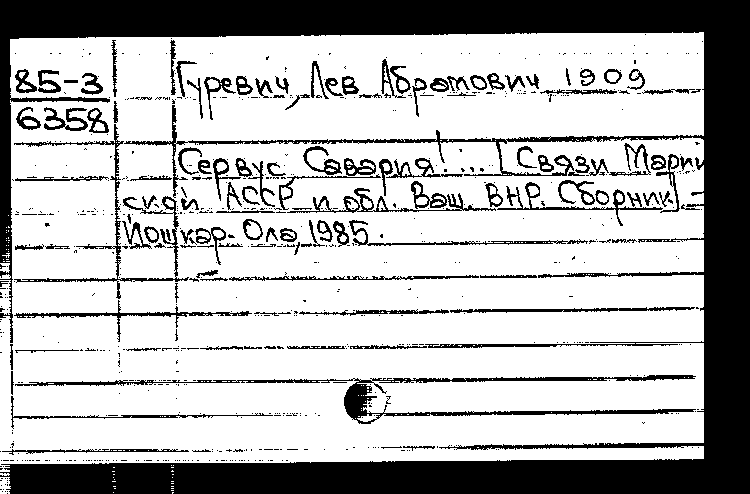 85-3
6358
Гуревич, Лев Абрамович, 1909
Сервус, Савария!... [Связи Марий
ской АССР и обл. Ваш. ВНР. Сборник] -
Йошкар-Ола, 1985.